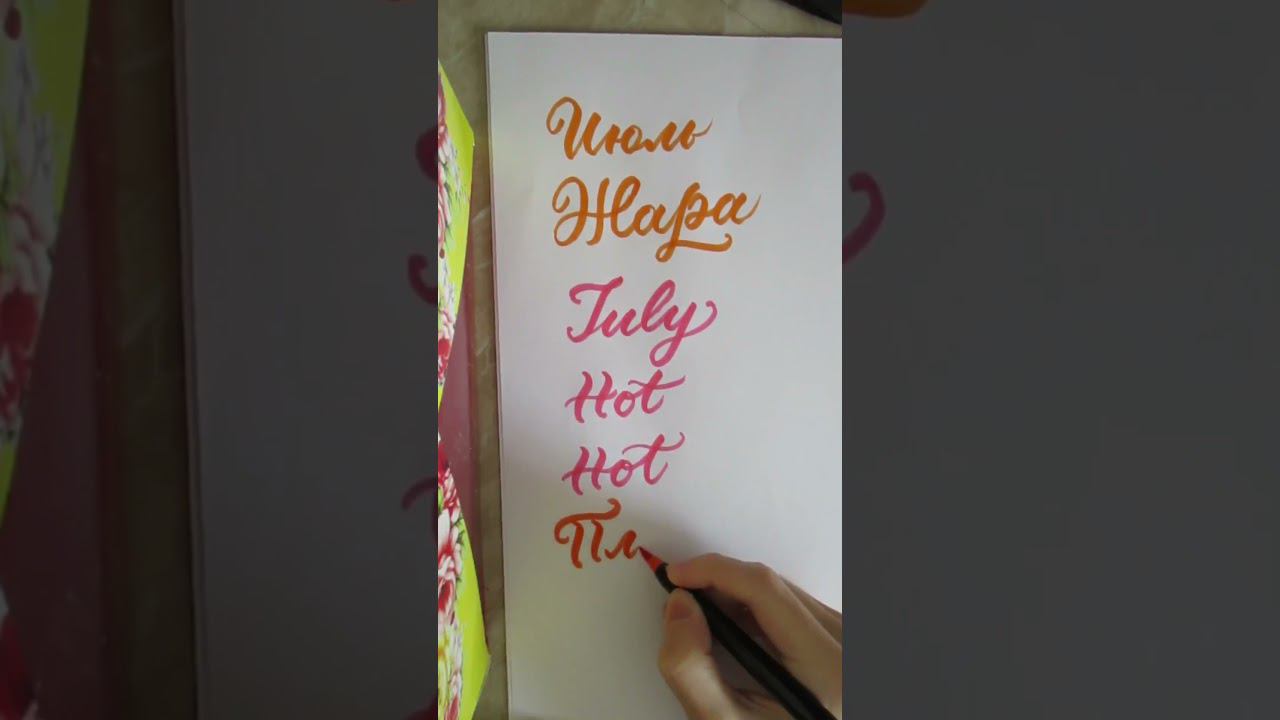 Июль
Жара
July
Hot
Hot
Пл